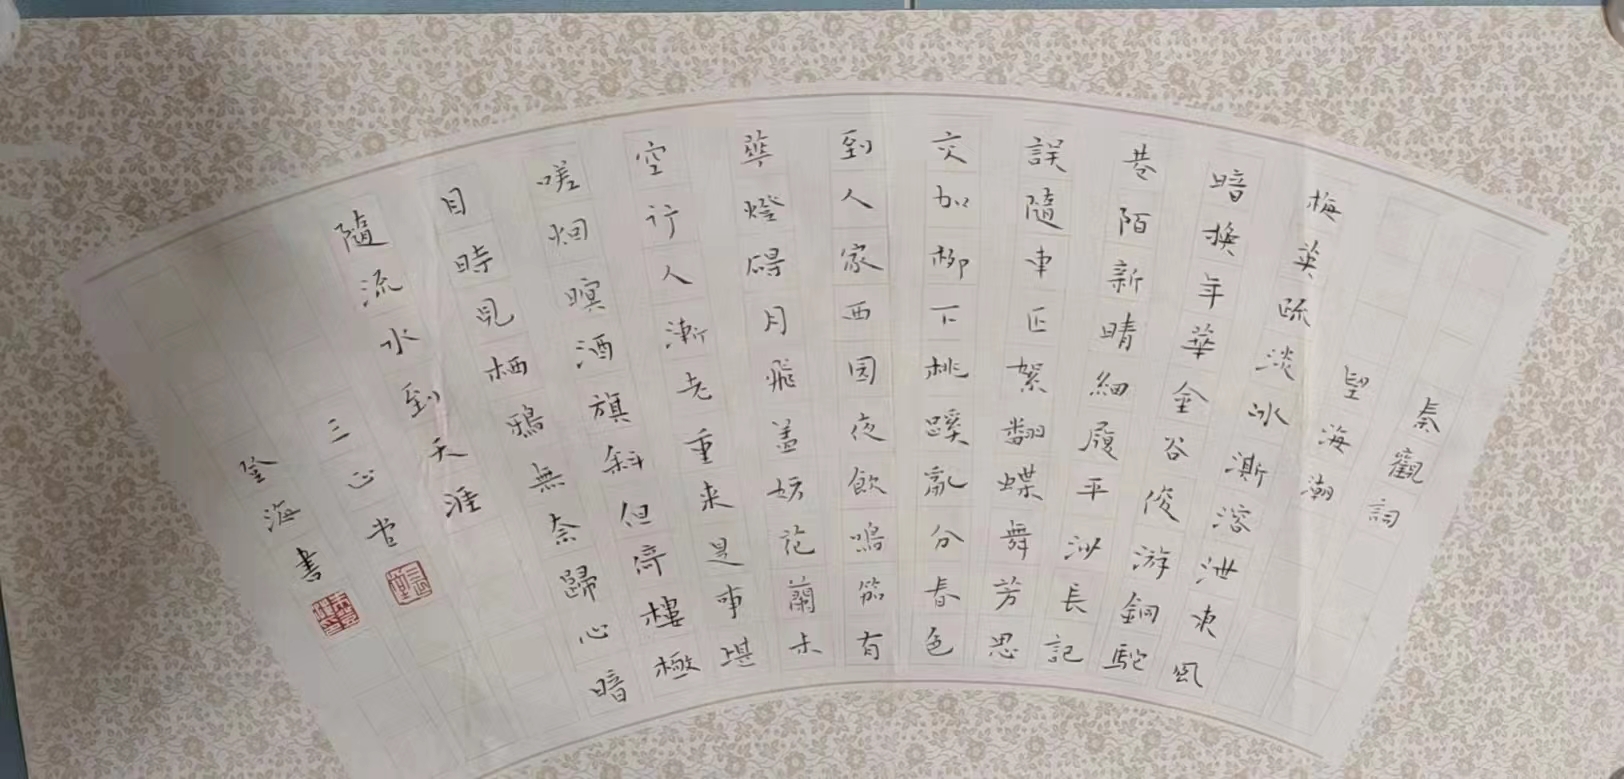 秦觀詞
望海潮
梅英疏淡冰澌溶泄東風
暗換年華金谷俊游銅駝
巷陌新晴細履平沙長記
誤隨車正絮翻蝶舞芳思
交加柳下桃蹊亂分春色
到人家西園夜飲鳴笳有
華燈碍月飛蓋妨花蘭未
空行人漸老重來是事堪
嗟烟暝酒旗斜但倚樓極
目時見栖鴉無奈歸心暗
隨流水到天涯
三正堂
登海書